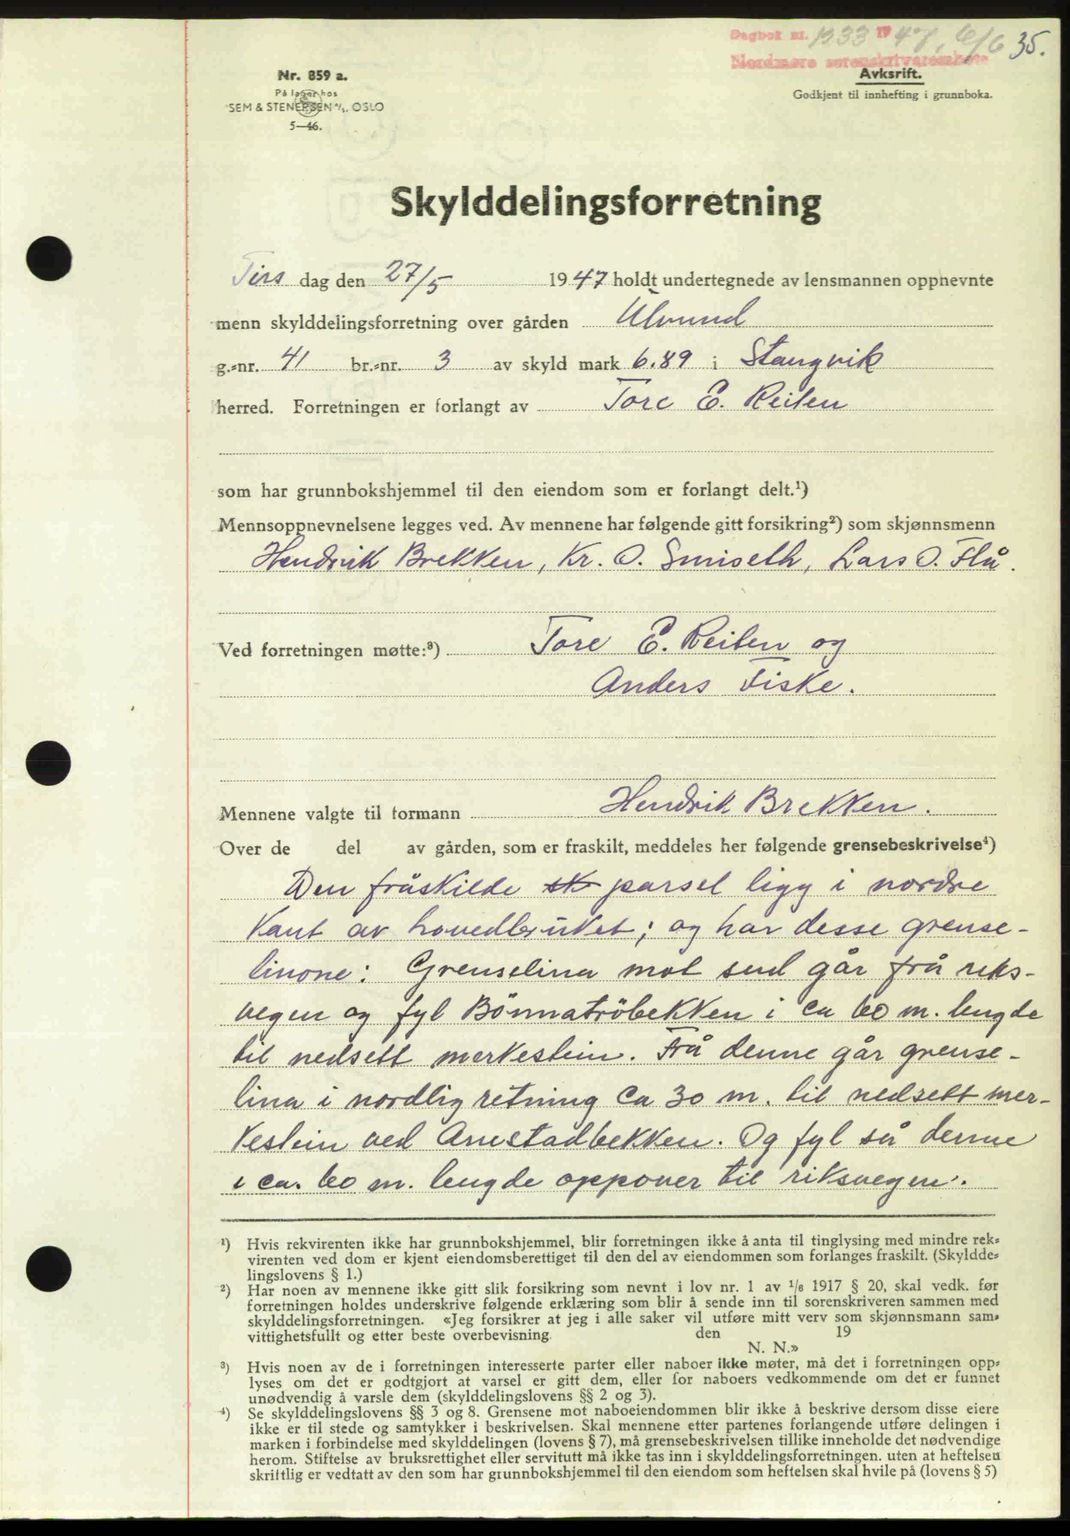 Dagbok nr. 1233 1947, 6/6 35.
Nordmøre sorenskriverembete
Nr. 859 a.
På lager hos
SEM & STENERSEN A/S, OSLO
5—46.
Avskrift.
Godkjent til innhefting i grunnboka.
Skylddelingsforretning
Tirs dag den 27/5 1947 holdt undertegnede av lensmannen oppnevnte
menn skylddelingsforretning over gården Ulvund
g.-nr. 41 br.-nr. 3 av skyld mark 6.89 i Stangvik
herred. Forretningen er forlangt av Tore E. Reiten
som har grunnbokshjemmel til den eiendom som er forlangt delt.¹)
Mennsoppnevnelsene legges ved. Av mennene har følgende gitt forsikring²) som skjønnsmenn
Hendrik Brekken, Kr. O. Smiseth, Lars O. Flå.
Ved forretningen møtte:³) Tore E. Reiten og
Anders Fiske.
Mennene valgte til formann Hendrik Brekken.
Over de del av gården, som er fraskilt, meddeles her følgende grensebeskrivelse⁴)
Den fråskilde sk parsel ligg i nordre
kant av hovedbruket; og har desse grense-
linone: Grenselina mot sud går frå riks-
vegen og fyl Bönnatröbekken i ca 60 m. lengde
til nedsett merkestein. Frå denne går grense-
lina i nordlig retning ca 30 m. til nedsett mer-
kestein ved Arnestadbekken. Og fyl så denne
i ca. 60 m. lengde oppover til riksvegen.
¹) Hvis rekvirenten ikke har grunnbokshjemmel, blir forretningen ikke å anta til tinglysing med mindre rek-
virenten ved dom er kjent eiendomsberettiget til den del av eiendommen som forlanges fraskilt. (Skyldde-
lingslovens § 1.)
²) Har noen av mennene ikke gitt slik forsikring som nevnt i lov nr. 1 av 1/6 1917 § 20, skal vedk. før
forretningen holdes underskrive følgende erklæring som blir å sende inn til sorenskriveren sammen med
skylddelingsforretningen. «Jeg forsikrer at jeg i alle saker vil utføre mitt verv som skjønnsmann sam-
vittighetsfullt og etter beste overbevisning den 19
N. N.»
³) Hvis noen av de i forretningen interesserte parter eller naboer ikke møter, må det i forretningen opp-
lyses om det er godtgjort at varsel er gitt dem, eller for naboers vedkommende om det er funnet
unødvendig å varsle dem (skylddelingslovens §§ 2 og 3).
⁴) Se skylddelingslovens §§ 3 og 8. Grensene mot naboeiendommen blir ikke å beskrive dersom disse eiere
ikke er til stede og samtykker i beskrivelsen. Skal mennene etter partenes forlangende utføre delingen i
marken i forbindelse med skylddelingen (lovens § 7), må grensebeskrivelsen tillike inneholde det nødvendige
herom. Stiftelse av bruksrettighet eller servitutt må ikke tas inn i skylddelingsforretningen. uten at heftelsen
skriftlig er vedtatt av den som har grunnbokshjemmel til den eiendom som heftelsen skal hvile på (lovens § 5)